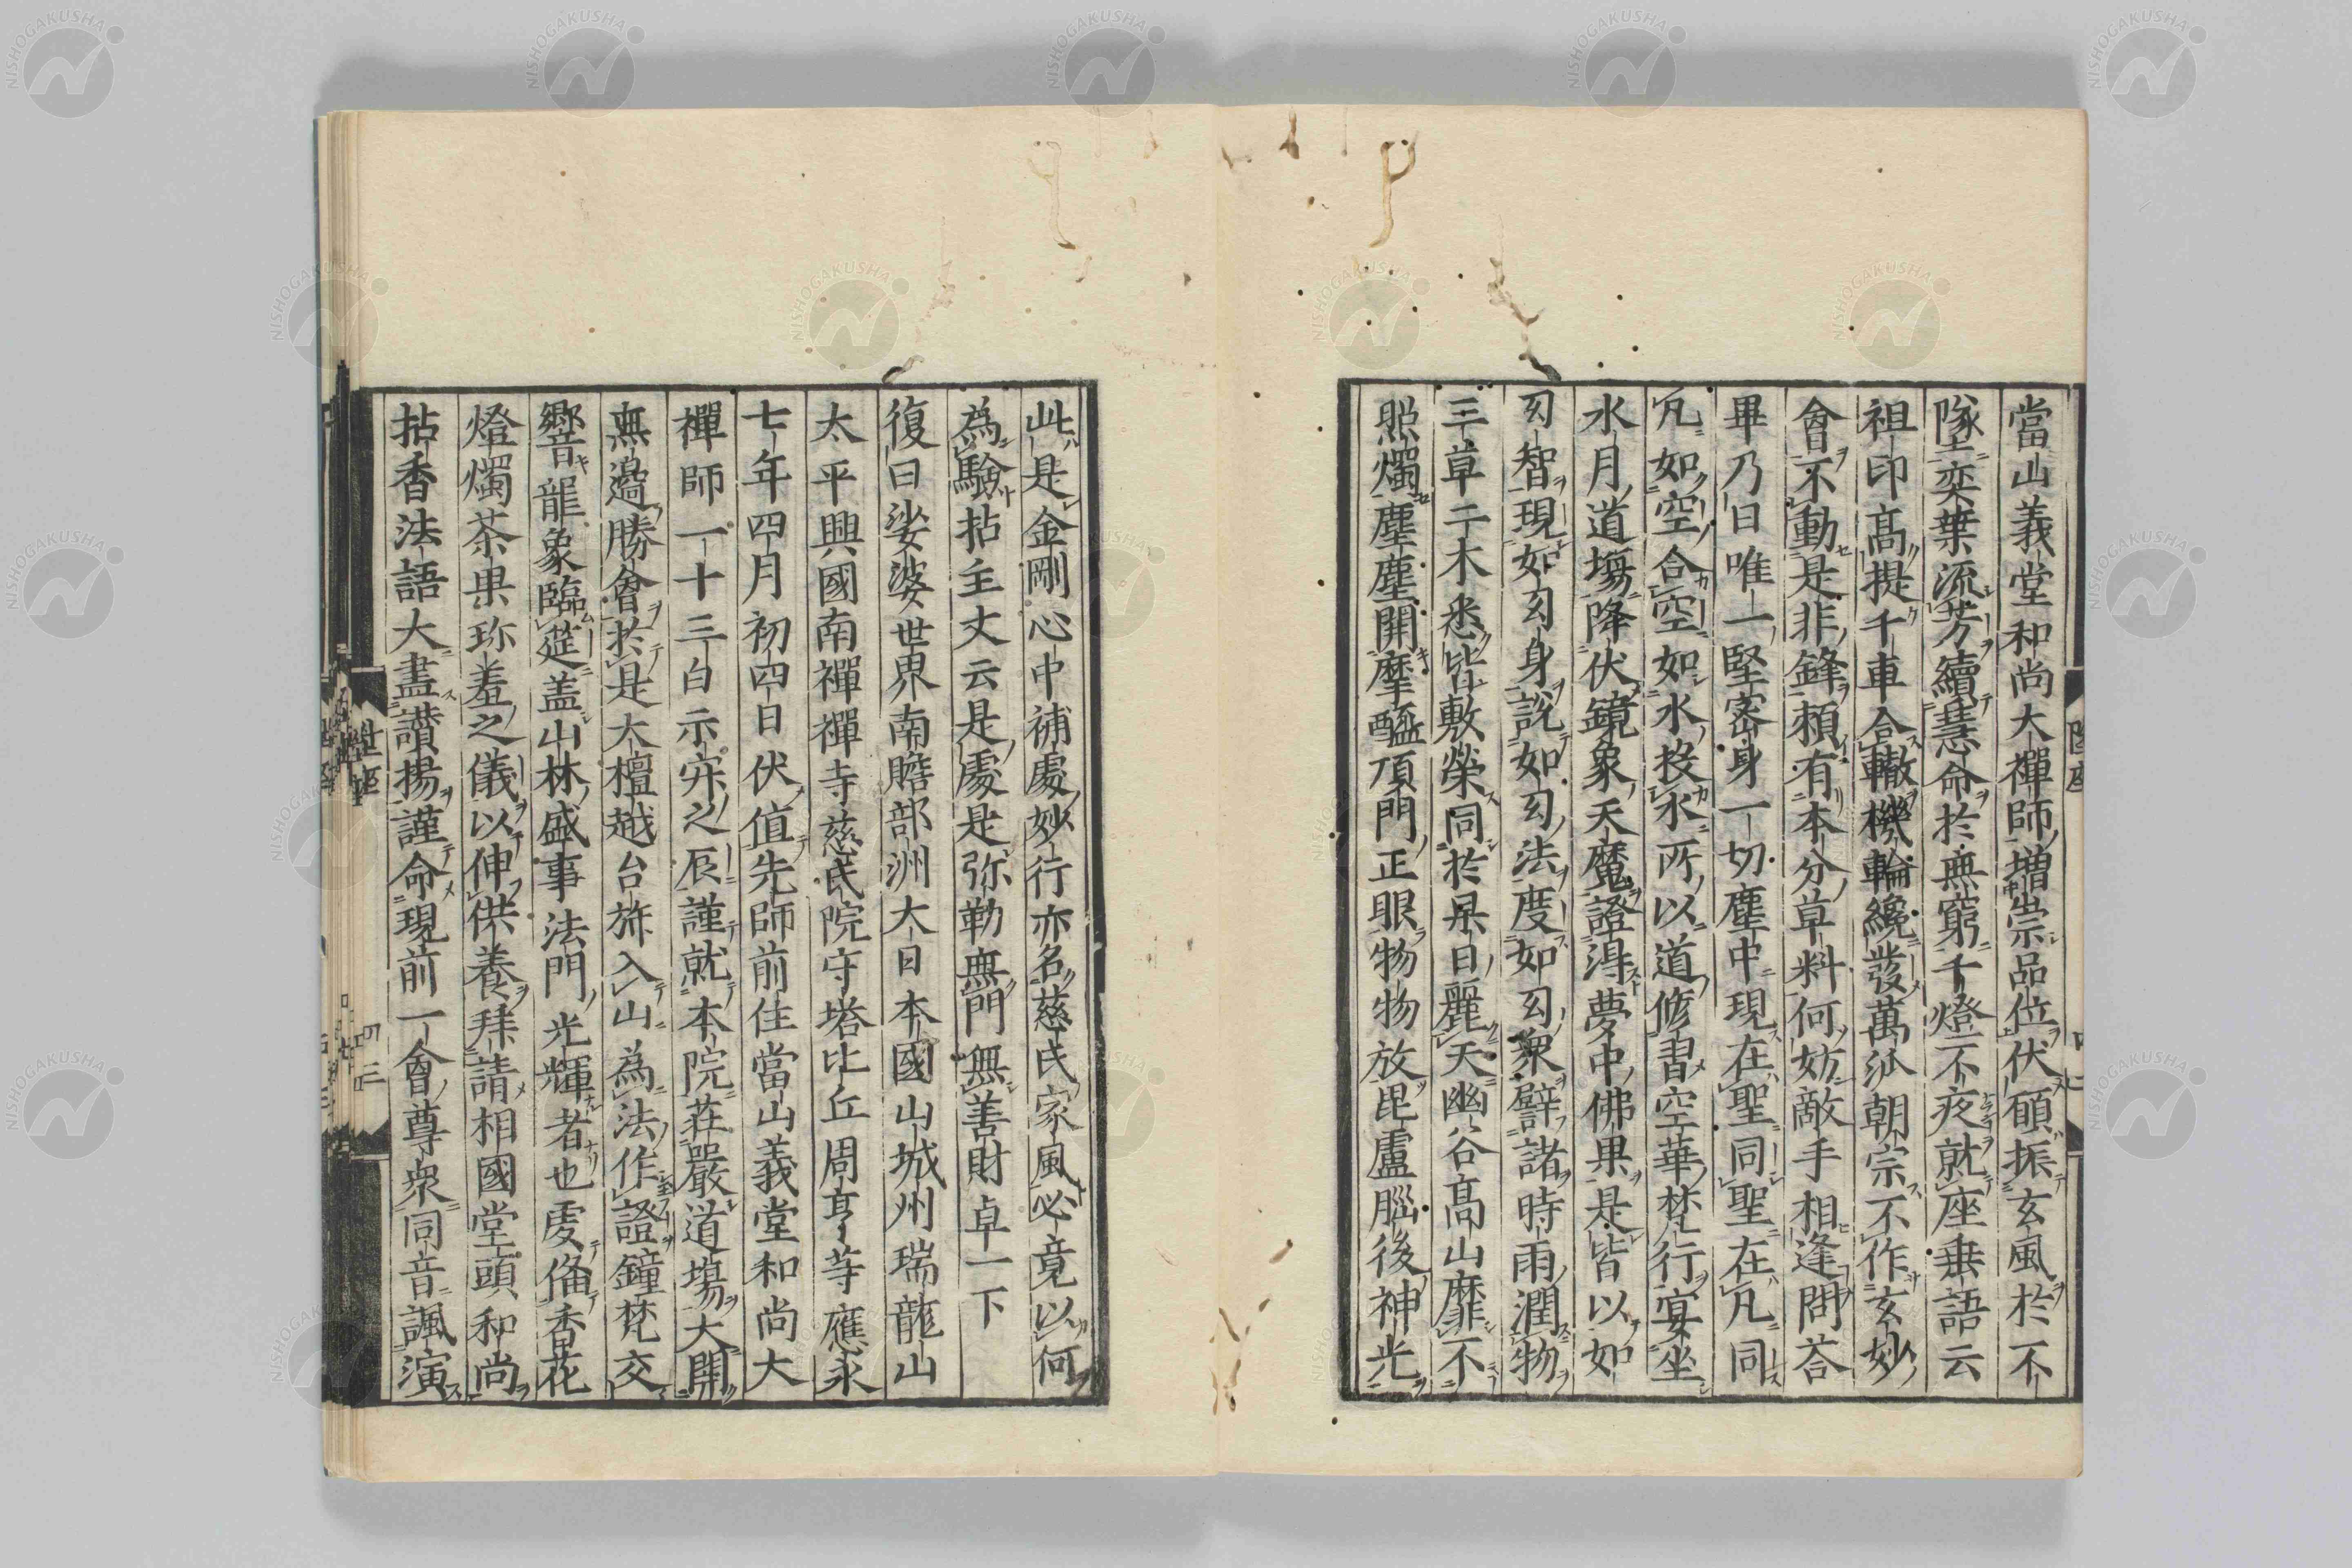 當山義堂和尚大禪師増崇品位伏願振玄風於不
墜奕葉流芳續慧命於無窮千燈不夜就座垂語云
祖印高提千車合轍機輪纔發萬派朝宗不作玄妙
會不動是非鋒頼有本分草料何妨敵手相逢問答
畢乃曰唯一堅密身一切塵中現在聖同聖在凡同
凡如空合空如水投水所以道修習空華梵行宴坐
水月道場降伏鏡象天魔證得夢中佛果是皆以如
幻智現如幻身說如幻法度如幻衆譬諸時雨潤物
三草二木悉皆敷榮同於杲日麗天幽谷高山靡不
照燭塵塵開摩醯頂門正眼物物放毘盧腦後神光
此是金剛心中補處妙行亦名慈氏家風必竟以何
為驗拈主丈云是處是弥勒無門無善財卓一下
復曰娑婆世界南贍部洲大日本國山城州瑞龍山
太平興國南禪禪寺慈氏院守塔比丘周亨等應永
七年四月初四日伏值先師前住當山義堂和尚大
禪師一十三白示寂之辰謹就本院莊嚴道場大開
無邊勝會於是大檀越台旆入山為法作證鐘梵交
響龍象臨筵盖山林盛事法門光輝者也處俻香花
燈燭茶果珎羞之儀以伸供養拜請相國堂頭和尚
拈香法語大盡讃揚謹命現前一會尊衆同音諷演